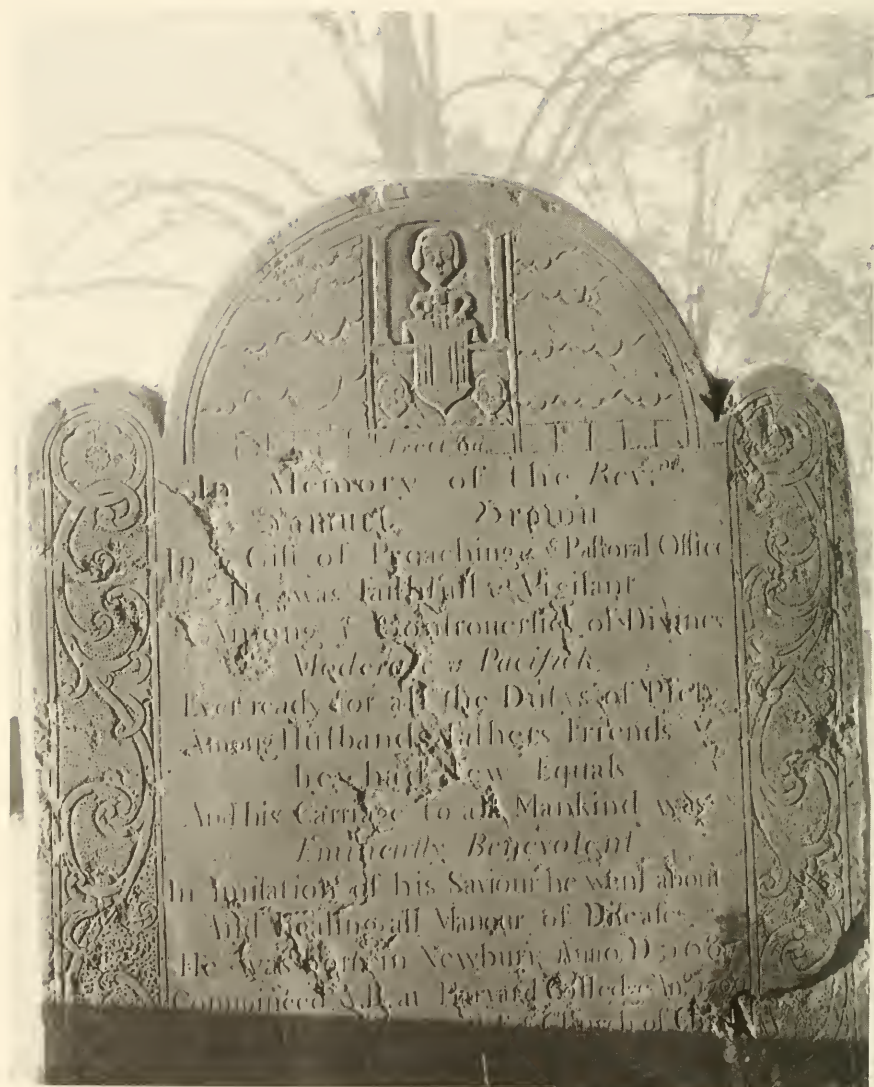 Erected
In Memory of the Rev.nd
Samuel Brown
In Gift of Preaching & Pastoral Office
He was Faithfull & Vigilant
Among Controuersies of Divines
Moderate & Pacifick
Ever ready for all the Dutys of Piety
Among Husbands Fathers Friends &c
he had few Equals
And his Carriage to all Mankind was
Eminently Benevolent
In Imitation of his Saviour he went about
And Healing all Manour of Diseases
He was born in Newbury Anno D 168
Commnced A.B. at Harvard Colledge An.
Church of